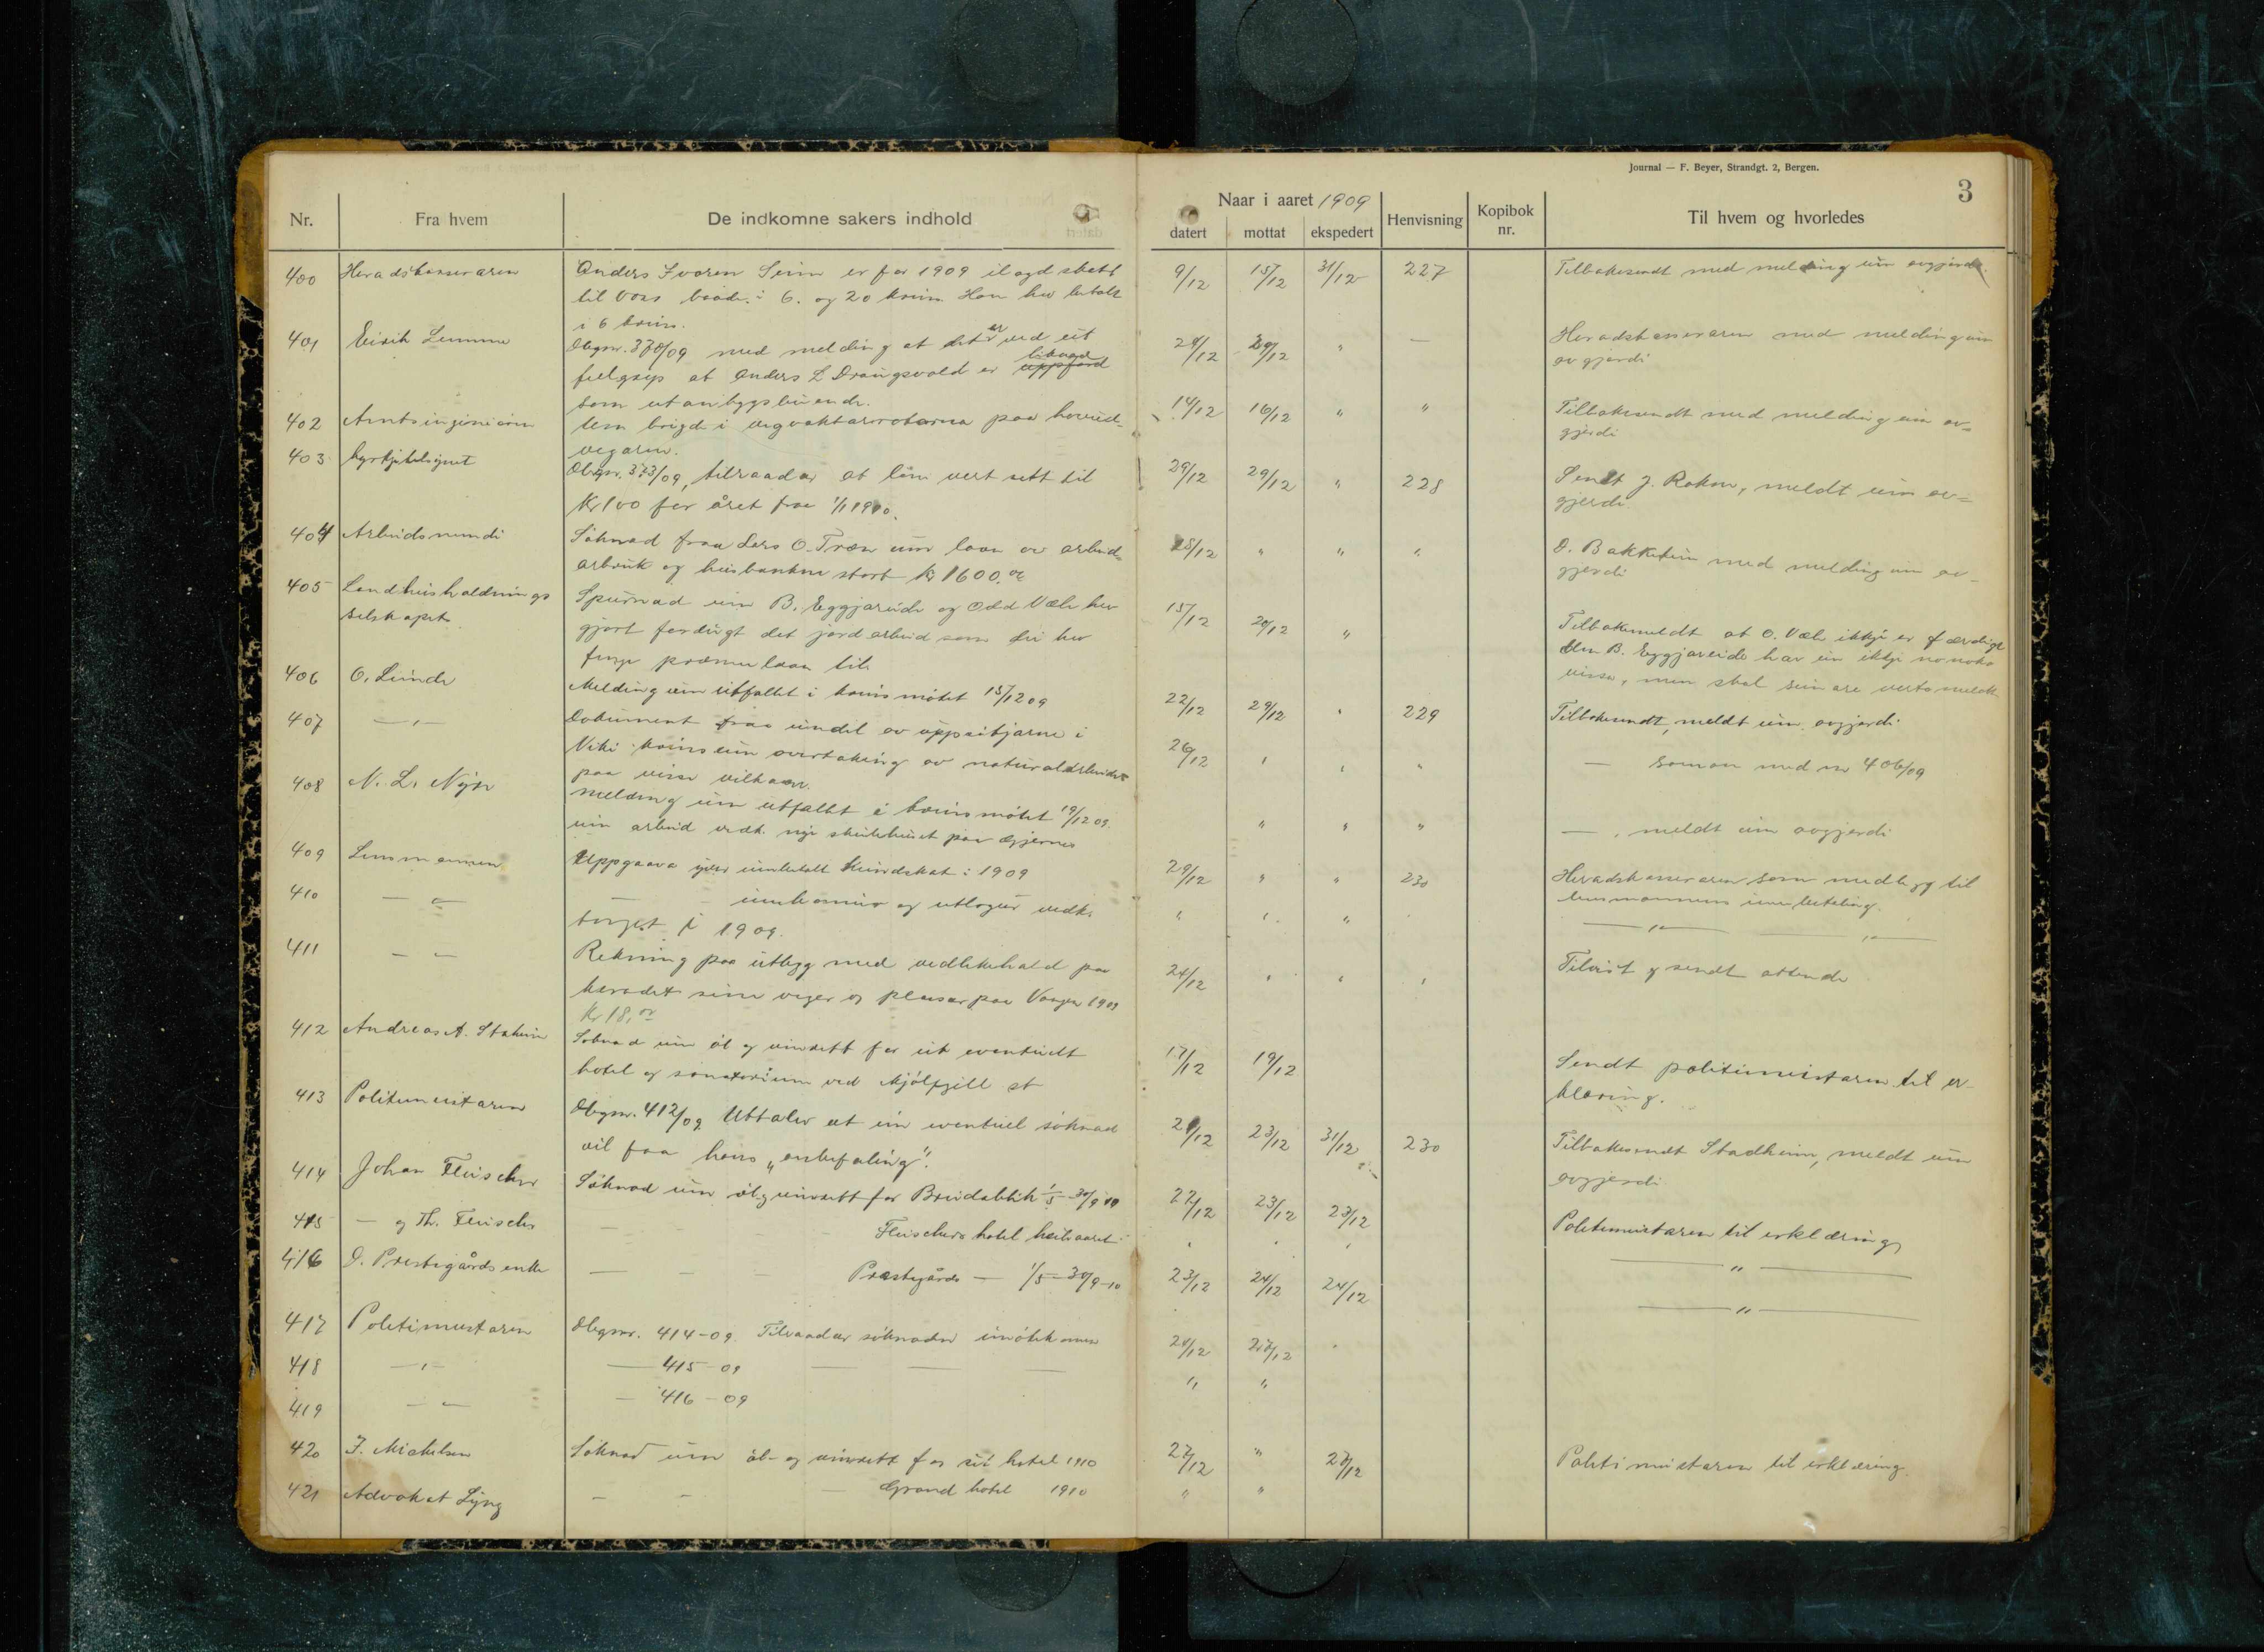 Journal — F. Beyer, Strandgt. 2, Bergen.
3
Nr. Fra hvem De indkomne sakers indhold
Naar i aaret 1909
datert mottat ekspedert Henvisning Kopibok nr. Til hvem og hvorledes
400 Heradskasseraren Anders Ivarson Seim er for 1909 ilagd skatt 9/12 15/12 31/12 227 Tilbakesendt med melding um avgjerdi.
til Voss baade i 6. og 20 krins. Han hev betalt
i 6 krins.
401 Eirik Lemme Dbgnr. 378/09 med melding at det er ved eit 28/12 29/12 " — Heradskasseraren med melding um
feilgrep at Anders L Draugsvold er uppførd liknad avgjerdi
som utanbygsbuande.
402 Amtsingeniøren Um brigde i vegvaktarrotarna paa hovud- 14/12 16/12 " " Tilbakesendt med melding um av-
vegaren. gjerdi
403 Kyrkjetilsynet Dbgnr. 373/09, tilraadar at løn vert sett til 29/12 29/12 " 228 Sendt J. Rokne, meldt um av-
Kr 100 for året fraa 1/1 1910. gjerdi.
404 Arbeidsnemdi Søknad fraa Lars O. Træn um laan av arbeids 28/12 " " " O. Bakketun med melding um av-
arbruk og husbanken stort kr 1600.00 gjerdi
405 Landhusholdnings Spurnad um B. Eggjareide og Odd Væle hev 15/12 20/12 " Tilbakemeldt at O. Væle ikkje er færdig
selskapet gjort ferdigt det jordarbeid som dei hev Um B. Eggjareide har ein ikkje no noko
fenge præmielaan til visse, men skal seinare verta meldt
406 O. Lunde Melding um utfallet i krinsmøtet 15/12 09 22/12 29/12 " 229 Tilbakesendt, meldt um avgjerdi
407 — " — Dokument fraa eindel av uppsitjarne i 26/12 " " " — saman med nr 406/09
Viki krins um overtaking av naturalarbeidet
paa visse vilkaar.
408 N. L. Nyre Melding um utfallet i krinsmøtet 19/12 09. " " " — , meldt um avgjerdi
um arbeid vedk. nye skulehuset paa Gjernes
409 Lensmannen Uppgaava yver innbetalt hundskat i 1909 29/12 " " 230 Heradskasseraren som medlegg til
lensmannens innbetaling.
410 — " — — innkomur og utlogur vedk. " " " — " — — " —
torget i 1909.
411 — " — Rekning paa utlegg med vedlikehald paa 24/12 " " " Tilvist og sendt attende
heradets sine veger og plassar paa Vangen 1909
Kr 18,00
412 Andreas A. Stakeim Søknad um øl og vinrett for eit eventuelt 17/12 19/12 Sendt politimeistaren til er-
hotel og sanatorium ved Mjølfjell st klæring.
413 Politimeistaren Dbgnr. 412/09 Uttaler at ein eventuel søknad 21/12 23/12 31/12 230 Tilbakesendt Stadheim, meldt um
vil faa hans „anbefaling". avgjerdi
414 Johan Fleischer Søknad um øl og vinrett for Breidablik 1/5-30/9 10 22/12 23/12 23/12 Politimeistaren til erklæring
415 — og Th. Fleischer — Fleischers hotel heile aaret " " " — " —
416 O. Prestegårds enke — — — Præstegårds — 1/5-30/9-10 23/12 24/12 24/12 — " —
417 Politimeistaren Dbgnr. 414-09. Tilraadar søknaden imøtekomen 24/12 27/12 "
418 — " — — 415-09 — — — " "
419 — " — — 416-09
420 J. Michelsen Søknad um øl- og vinrett for sit hotel 1910 27/12 " 28/12 Politimeistaren til erklæring.
421 Advokat Lyng — — — Grand hotel 1910 " "